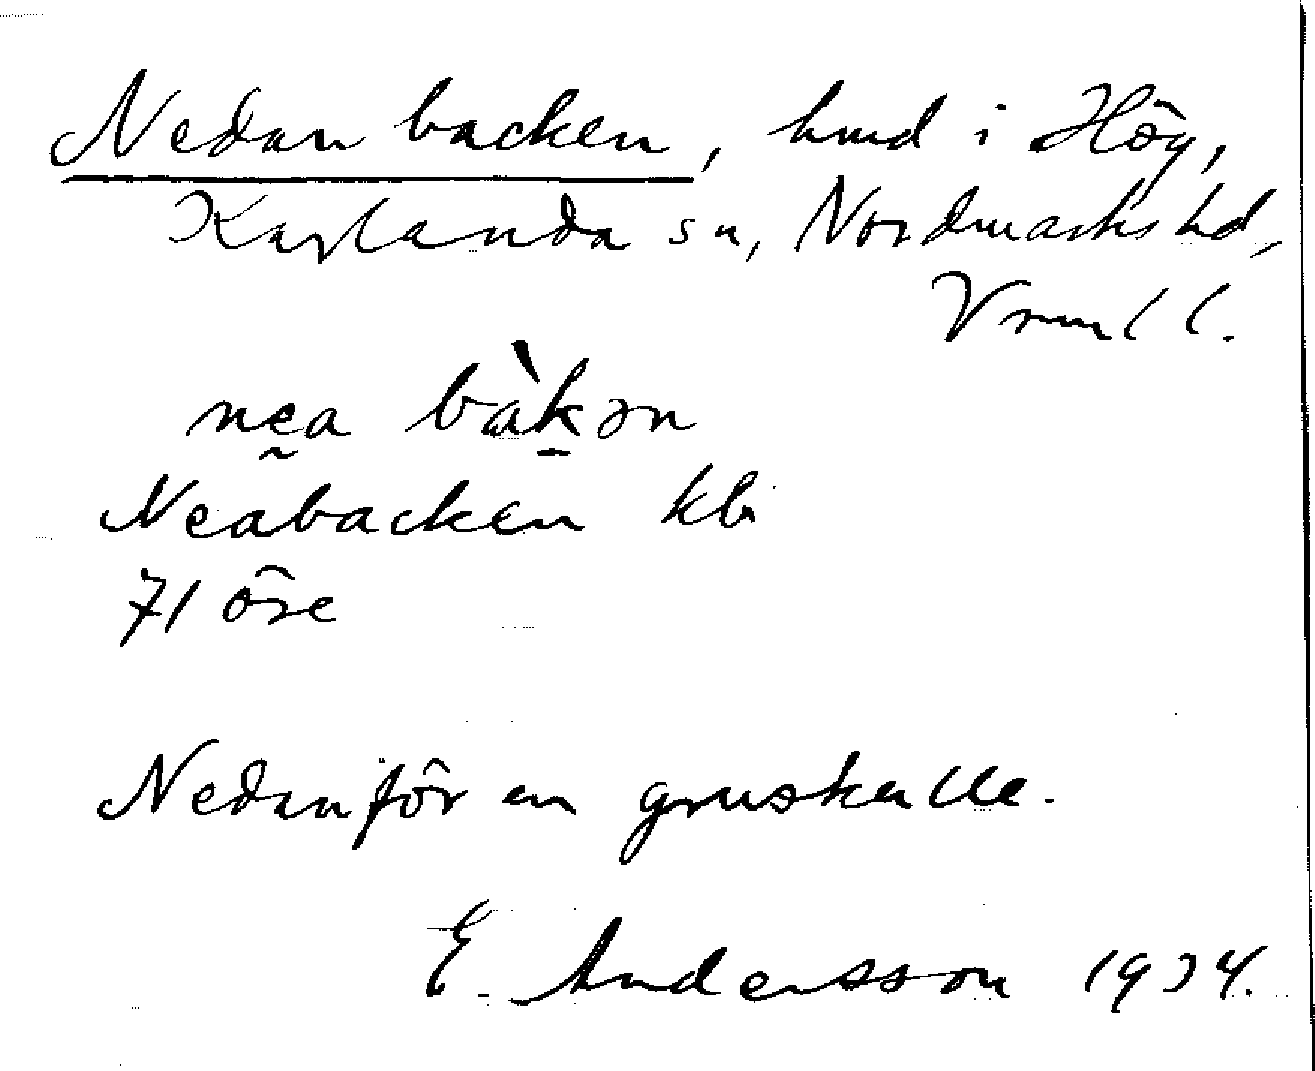 Nedan backen, hmd i Hög,
Karlanda sn, Nordmarks hd,
Vrml l.
nea bàkən
Neabacken kbr
71 öre
Nedanför en gruskulle.
E. Andersson 1934.